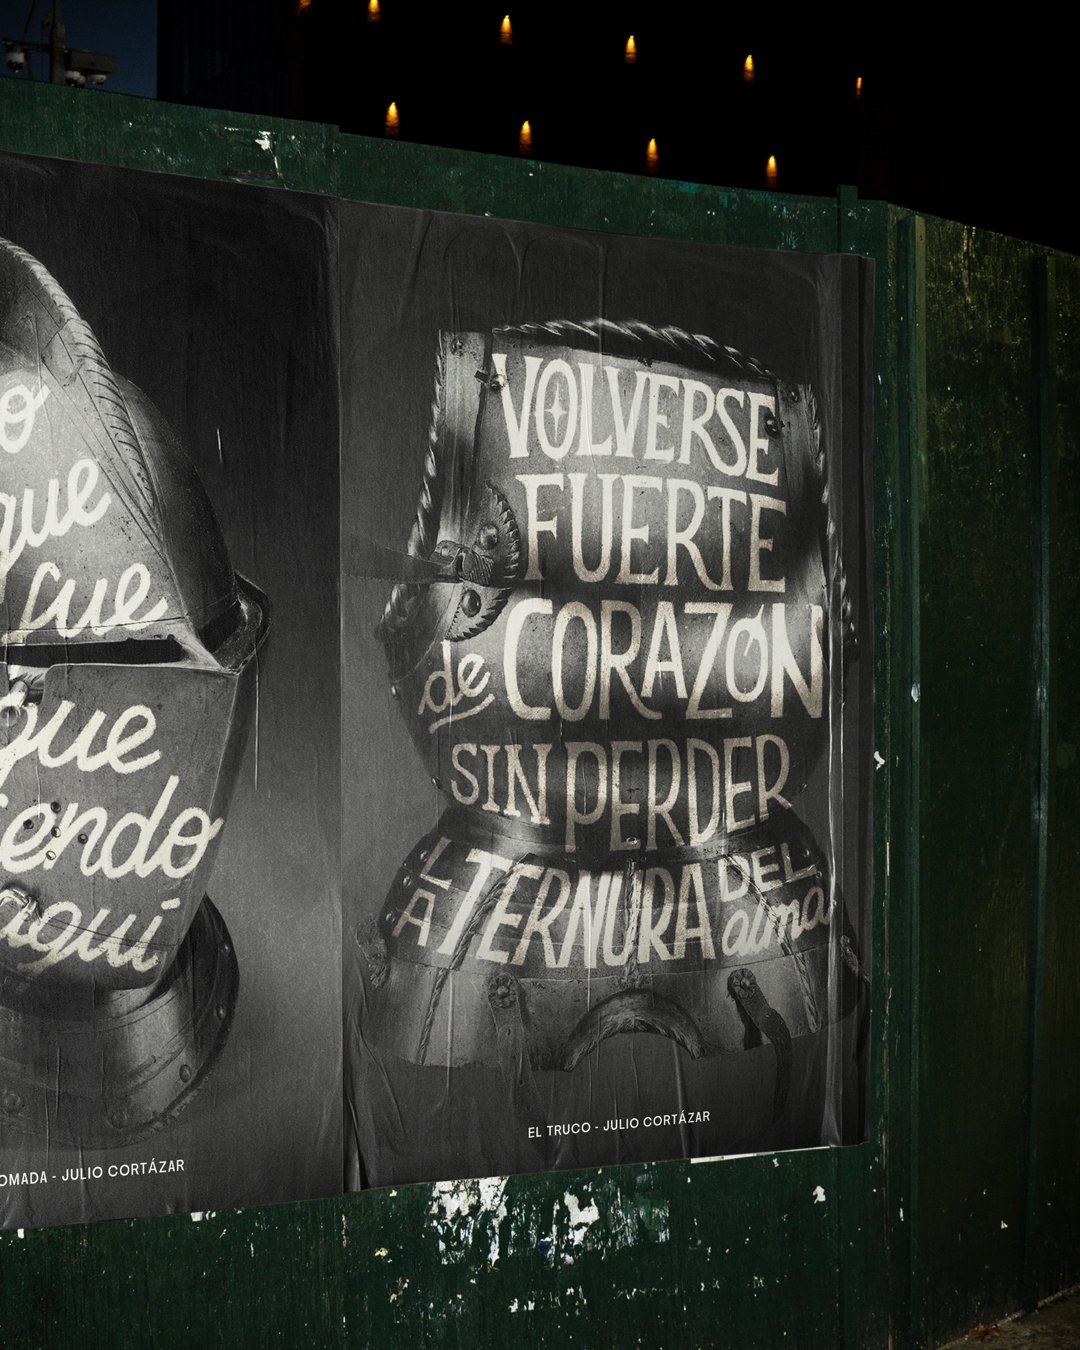 o
que
fue
que
iendo
aquí
OMADA - JULIO CORTÁZAR
VOLVERSE
FUERTE
de CORAZÓN
SIN PERDER
LA TERNURA DEL
alma
EL TRUCO - JULIO CORTÁZAR